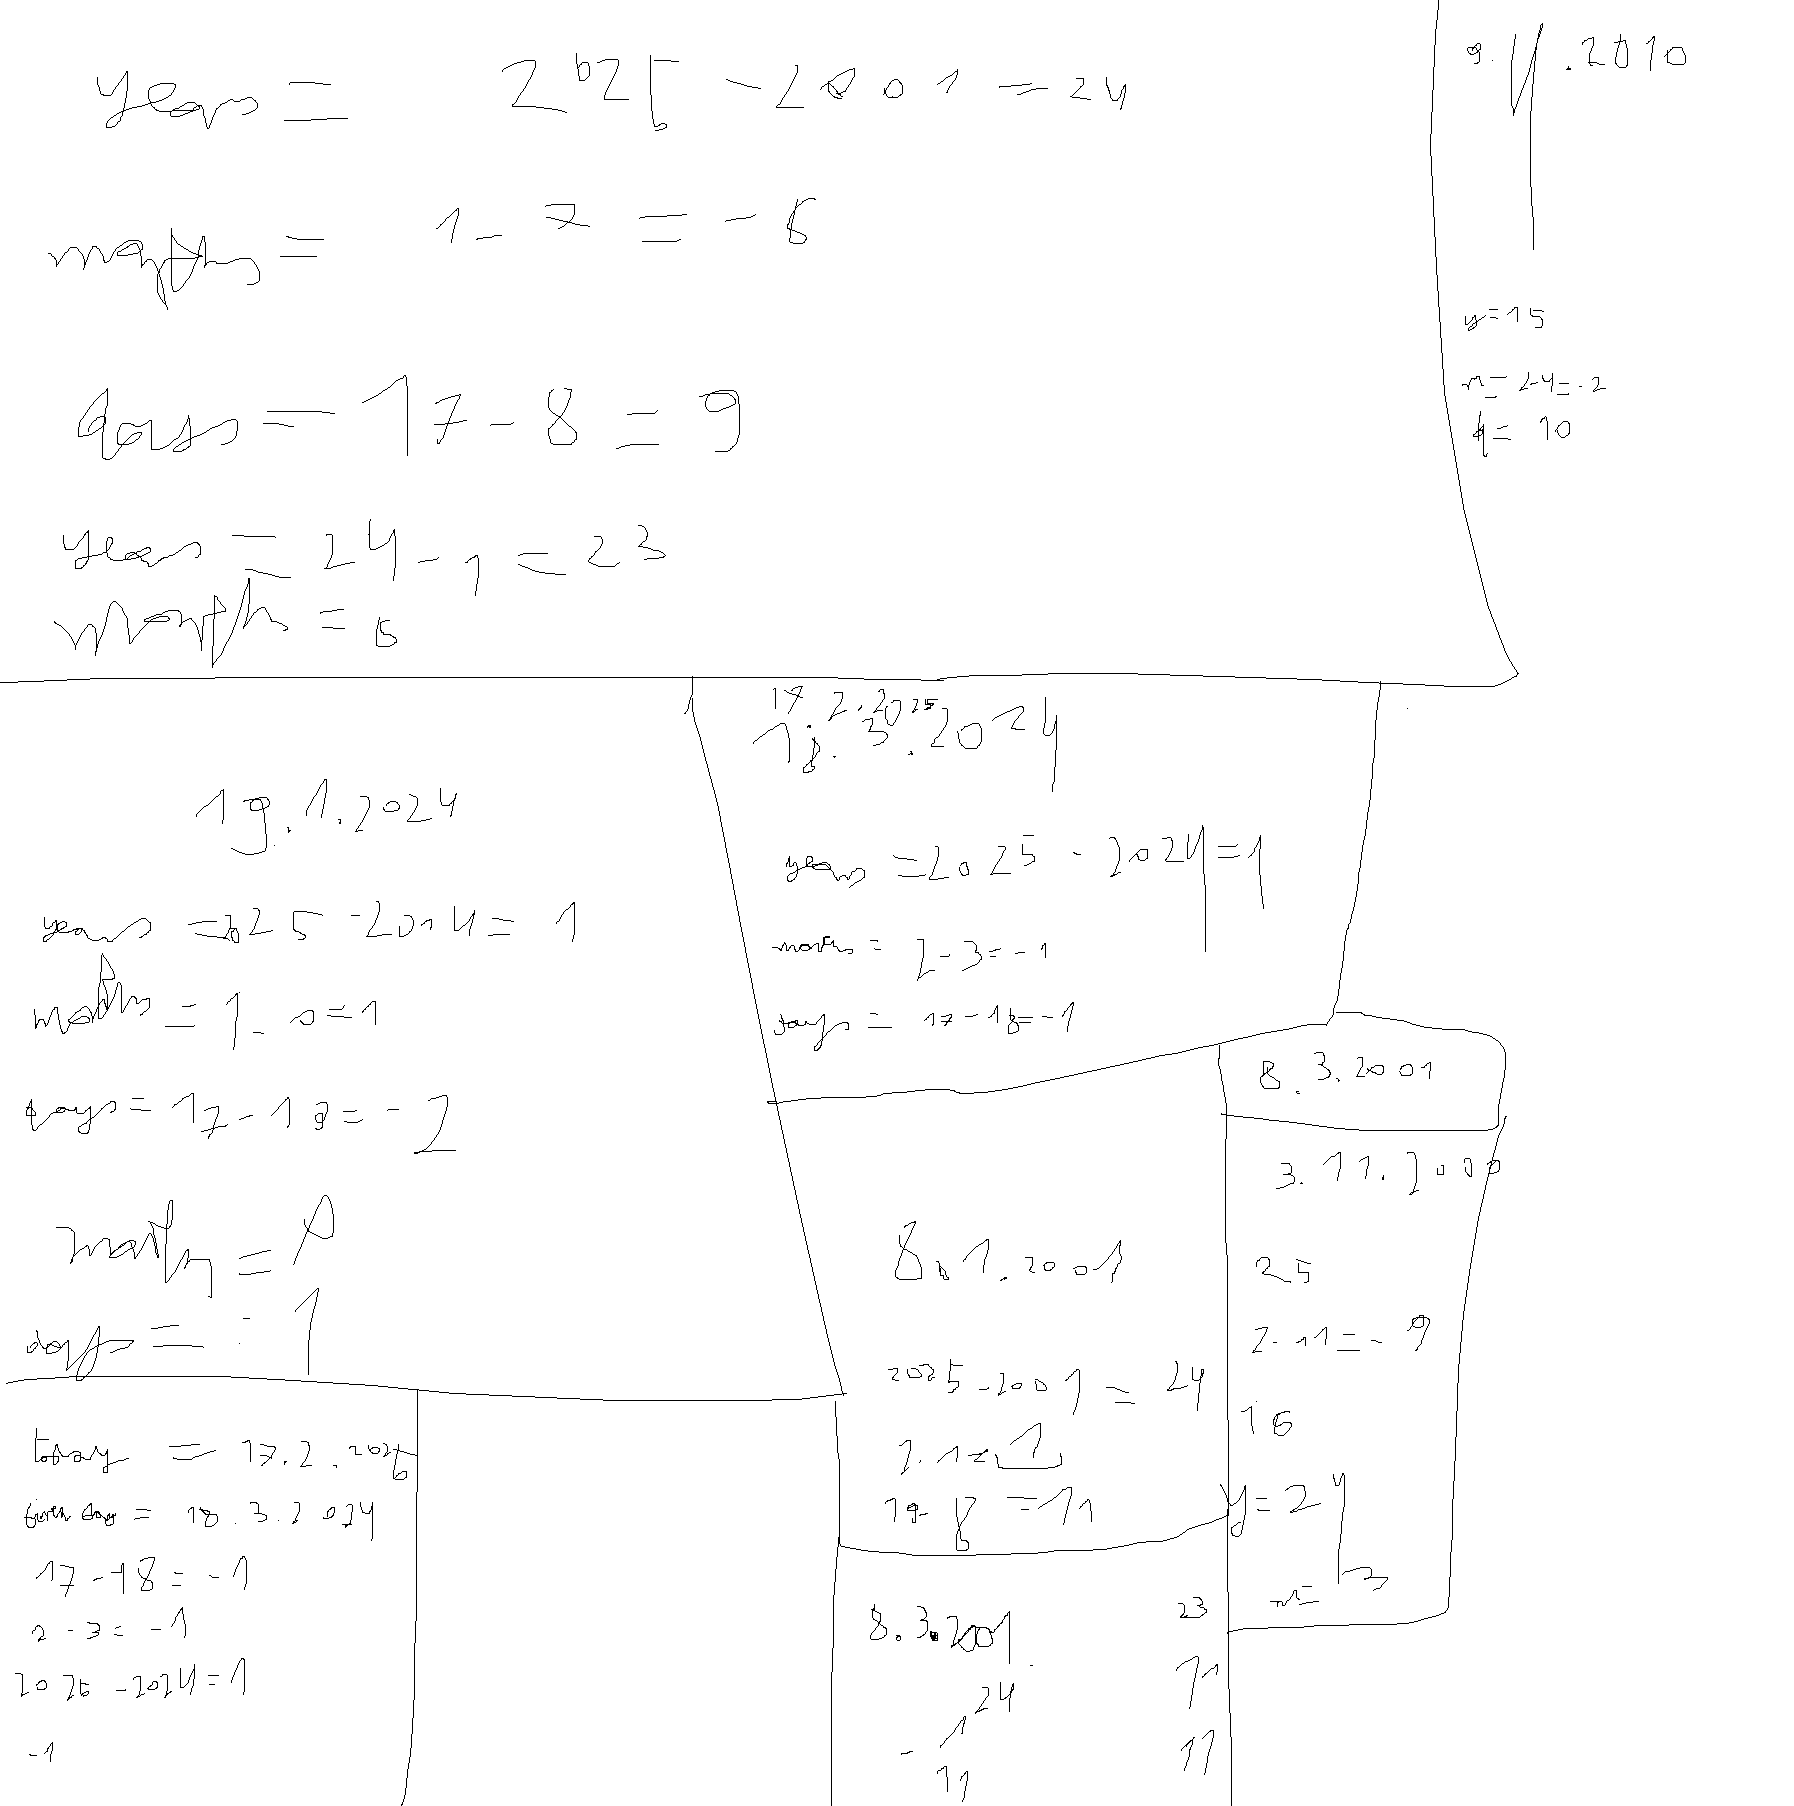 years = 2025 - 2001 = 24
months = 1 - 7 = - 6
days = 17 - 8 = 9
years = 24 - 1 = 23
month = 6
9. 4 .2010
y=15
m= 2-4=-2
d= 10
19.1.2024
years =2025 -2014= 1
months = 1- 0=1
days= 17-19=-2
months =
days = -1
17.2.2025
18.3.2024
years =2025 - 2024=1
months = 2-3=-1
days = 17-18=-1
8.3.2001
3.11.2000
25
2-11=-9
16
y=24
m= 3
8.1.2001
2025-2001 = 24
2-1= 1
19-8 =11
today = 17.2.2025
given day = 18.3.2024
17-18= -1
2 -3= -1
2025 -2024=1
-1
8.3.2001
24
- 1
11
23
11
11